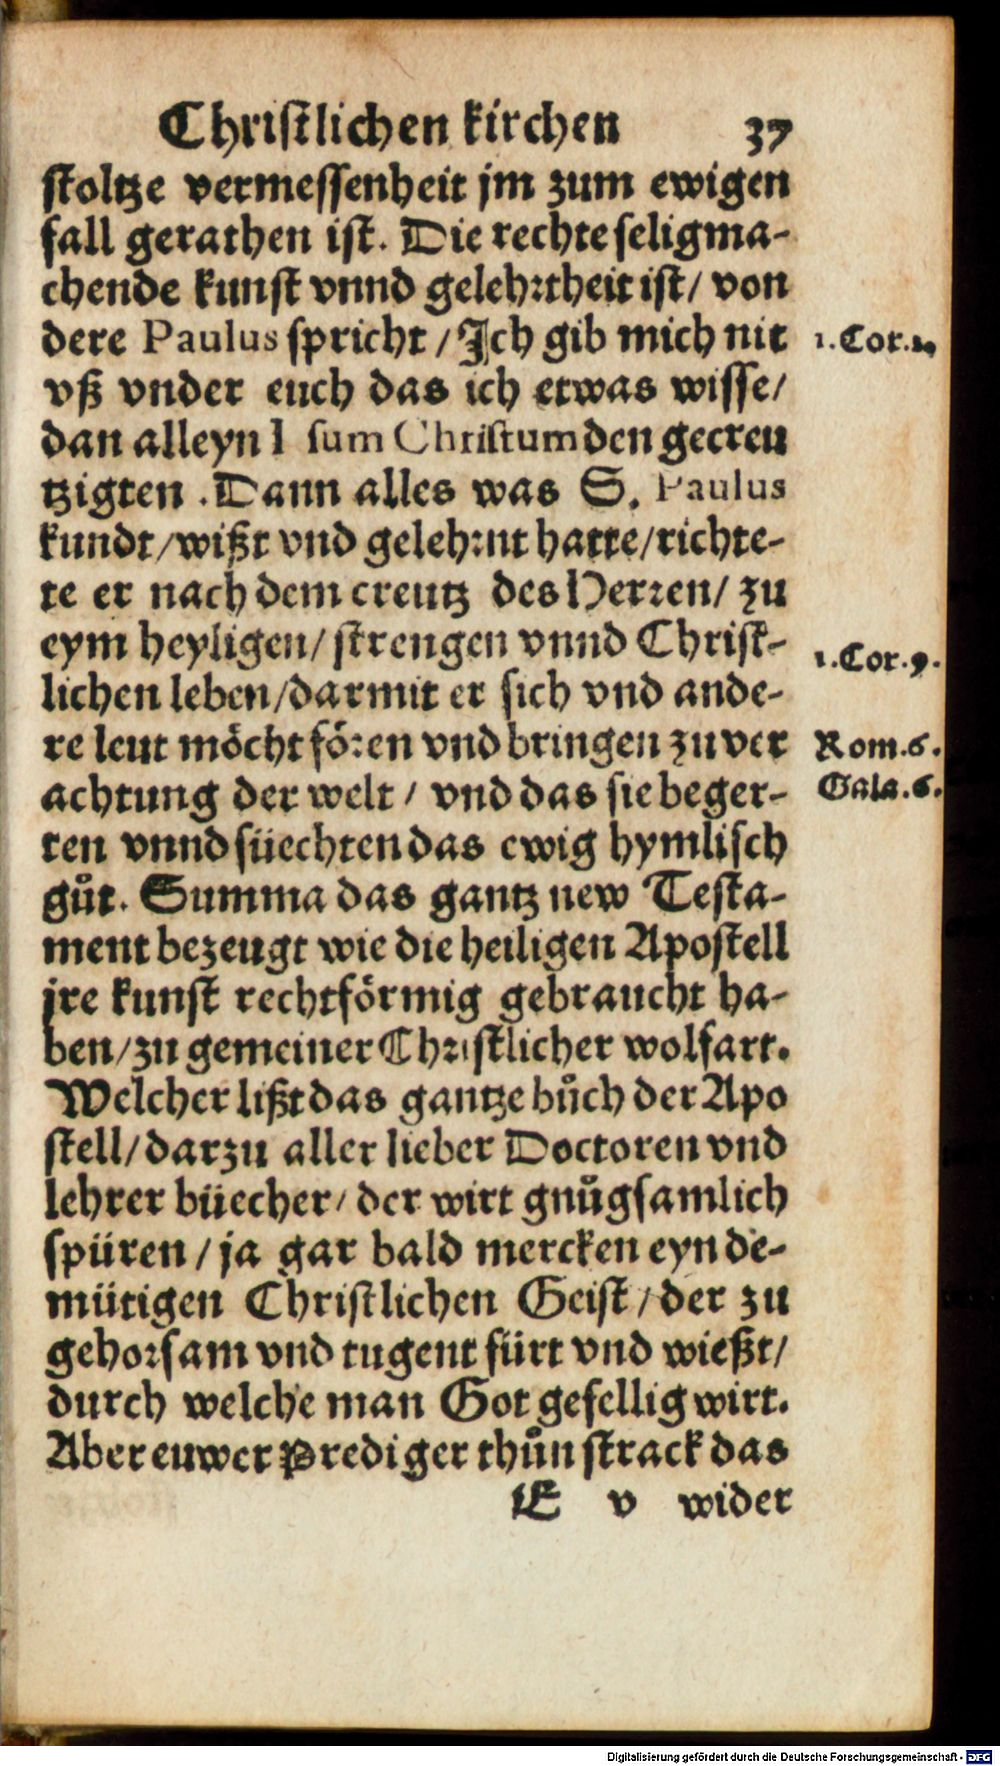 Christlichen kirchen 37
stoltze vermessenheit jm zum ewigen
fall gerathen ist. Die rechte seligma-
chende kunst vnnd gelehrtheit ist/ von
dere Paulus spricht / Ich gib mich nit
1. Cor. 2.
vß vnder euch das ich etwas wisse/
dan alleyn I sum Christum den gecreu
tzigten .Dann alles was S. Paulus
kundt/wißt vnd gelehrnt hatte/richte-
te er nach dem creutz des Herren/ zu
eym heyligen/ strengen vnnd Christ-
1. Cor. 9.
lichen leben/darmit er sich vnd ande-
re leut möcht fören vnd bringen zu ver
Rom. 6.
achtung der welt / vnd das sie beger-
Gala. 6.
ten vnnd süechten das ewig hymlisch
gůt. Summa das gantz new Testa-
ment bezeugt wie die heiligen Apostell
jre kunst rechtförmig gebraucht ha-
ben/zu gemeiner Christlicher wolfart.
Welcher lißt das gantze bůch der Apo
stell/darzu aller lieber Doctoren vnd
lehrer büecher/ der wirt gnůgsamlich
spüren / ja gar bald mercken eyn de-
mütigen Christlichen Geist / der zu
gehorsam vnd tugent fürt vnd wießt/
durch welche man Got gefellig wirt.
Aber euwer Prediger thůn strack das
E v wider
Digitalisierung gefördert durch die Deutsche Forschungsgemeinschaft - DFG